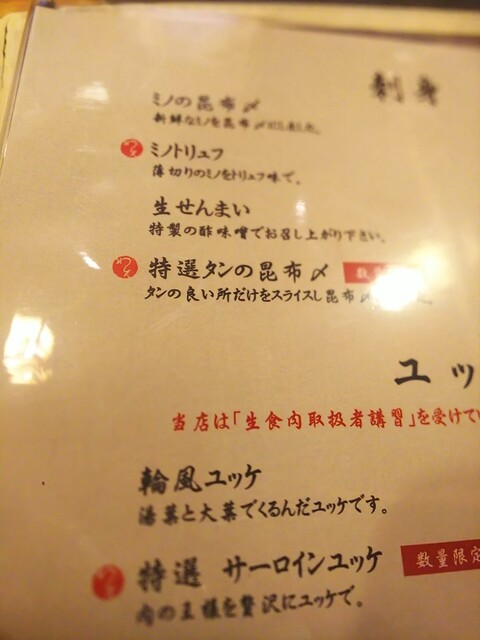 刺身
ミノの昆布〆
新鮮なミノを昆布〆
ミノトリュフ
薄切りのミノをトリュフ味で。
生せんまい
特製の酢味噌でお召し上がり下さい。
特選タンの昆布〆
タンの良い所だけをスライスし昆布〆
ユッ
当店は「生食肉取扱者講習」を受けてい
輪風ユッケ
湯葉と大葉でくるんだユッケです。
特選 サーロインユッケ 数量限定
肉の王様を贅沢にユッケで。